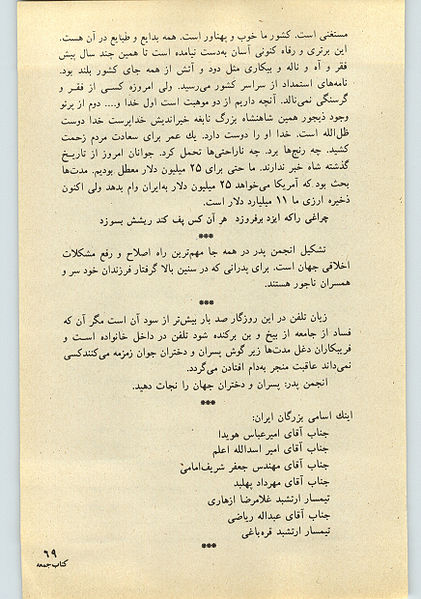 مستغنی است. کشور ما خوب و پهناور است. همه بدایع و طبایع در آن هست.
این برتری و رفاه کنونی آسان به‌دست نیامده است تا همین چند سال پیش
فقر و آه و ناله و بیکاری مثل دود و آتش از همه جای کشور بلند بود.
نامه‌های استمداد از سراسر کشور می‌رسید. ولی امروزه کسی از فقر و
گرسنگی نمی‌نالد. آنچه داریم از دو موهبت است اول خدا و.... دوم از پرتو
وجود ذیجور همین شاهنشاه بزرگ نابغه خیراندیش خداپرست خدا دوست
ظل‌الله است. خدا او را دوست دارد. یك عمر برای سعادت مردم زحمت
کشید. چه رنج‌ها برد. چه ناراحتی‌ها تحمل کرد. جوانان امروز از تاریخ
گذشته شاه خبر ندارند. ما حتی برای ۲۵ میلیون دلار معطل بودیم. مدت‌ها
بحث بود که آمریکا می‌خواهد ۲۵ میلیون دلار به‌ایران وام بدهد ولی اکنون
ذخیره ارزی ما ۱۱ میلیارد دلار است.
چراغی راکه ایزد برفروزد هر آن کس پف کند ریشش بسوزد
***
تشکیل انجمن پدر در همه جا مهم‌ترین راه اصلاح و رفع مشکلات
اخلاقی جهان است. برای پدرانی که در سنین بالا گرفتار فرزندان خود سر و
همسران ناجور هستند.
***
زیان تلفن در این روزگار صد بار بیش‌تر از سود آن است مگر آن که
فساد از جامعه از بیخ و بن برکنده شود تلفن در داخل خانواده است و
فریبکاران دغل مدت‌ها زیر گوش پسران و دختران جوان زمزمه می‌کنندکسی
نمی‌داند عاقبت منجر به‌دام افتادن می‌گردد.
انجمن پدر: پسران و دختران جهان را نجات دهید.
***
اینك اسامی بزرگان ایران:
جناب آقای امیرعباس هویدا
جناب آقای امیر اسدالله اعلم
جناب آقای مهندس جعفر شریف‌امامی
جناب آقای مهرداد پهلبد
تیمسار ارتشبد غلامرضا ازهاری
جناب آقای عبداله ریاضی
تیمسار ارتشبد قره‌باغی
***
۶۹
کتاب جمعه